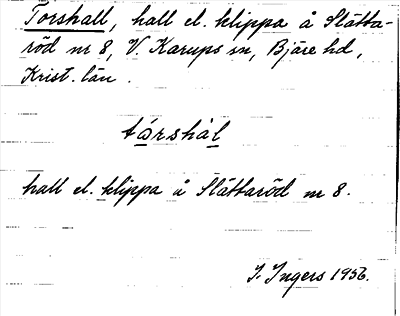 Torshall, hall el. klippa å Slätta-
röd nr 8, V. Karups sn, Bjäre hd,
Krist. län.
tå̱rshàl̲
hall el. klippa å Slättaröd nr 8.
I. Ingers 1956.